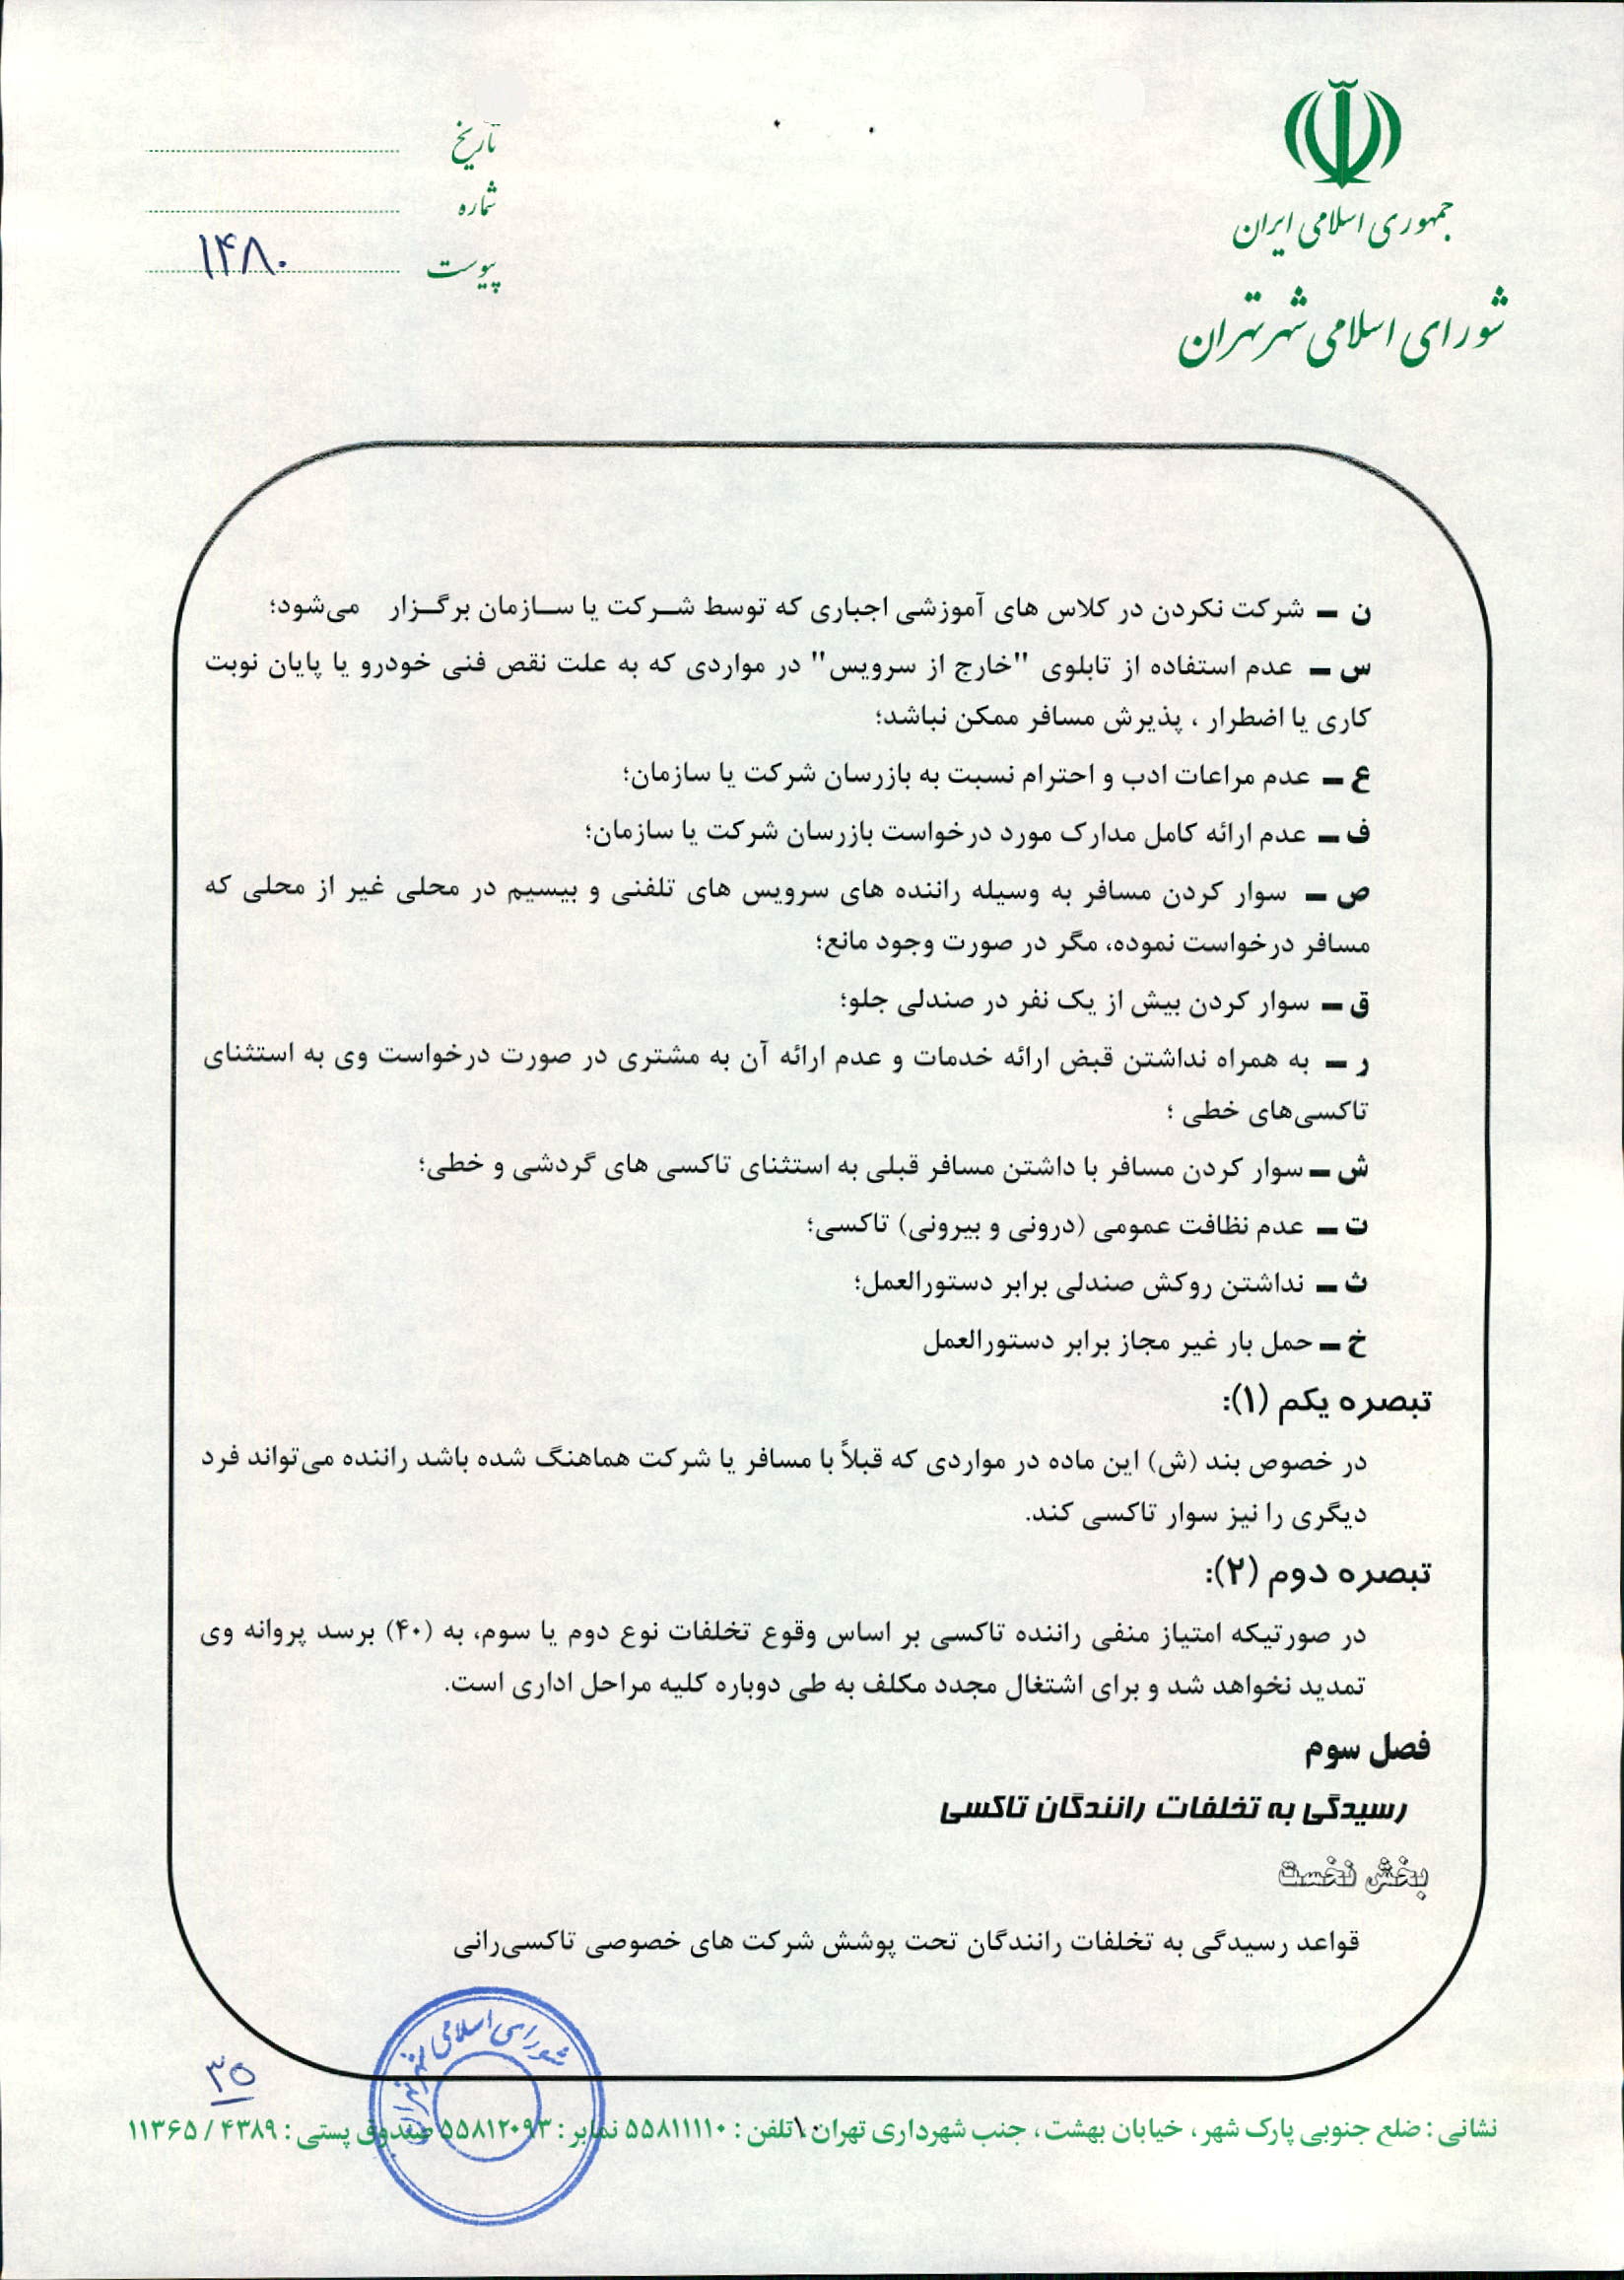 جمهوری اسلامی ایران
شورای اسلامی شهر تهران
تاریخ
شماره
پیوست ۱۴۸۰
ن – شرکت نکردن در کلاس های آموزشی اجباری که توسط شرکت یا سازمان برگزار می‌شود؛
س – عدم استفاده از تابلوی "خارج از سرویس" در مواردی که به علت نقص فنی خودرو یا پایان نوبت
کاری یا اضطرار ، پذیرش مسافر ممکن نباشد؛
ع – عدم مراعات ادب و احترام نسبت به بازرسان شرکت یا سازمان؛
ف – عدم ارائه کامل مدارک مورد درخواست بازرسان شرکت یا سازمان؛
ص – سوار کردن مسافر به وسیله راننده های سرویس های تلفنی و بیسیم در محلی غیر از محلی که
مسافر درخواست نموده، مگر در صورت وجود مانع؛
ق – سوار کردن بیش از یک نفر در صندلی جلو؛
ر – به همراه نداشتن قبض ارائه خدمات و عدم ارائه آن به مشتری در صورت درخواست وی به استثنای
تاکسی‌های خطی ؛
ش – سوار کردن مسافر با داشتن مسافر قبلی به استثنای تاکسی های گردشی و خطی؛
ت – عدم نظافت عمومی (درونی و بیرونی) تاکسی؛
ث – نداشتن روکش صندلی برابر دستورالعمل؛
خ – حمل بار غیر مجاز برابر دستورالعمل
تبصره یکم (۱):
در خصوص بند (ش) این ماده در مواردی که قبلاً با مسافر یا شرکت هماهنگ شده باشد راننده می‌تواند فرد
دیگری را نیز سوار تاکسی کند.
تبصره دوم (۲):
در صورتیکه امتیاز منفی راننده تاکسی بر اساس وقوع تخلفات نوع دوم یا سوم، به (۴۰) برسد پروانه وی
تمدید نخواهد شد و برای اشتغال مجدد مکلف به طی دوباره کلیه مراحل اداری است.
فصل سوم
رسیدگی به تخلفات رانندگان تاکسی
بخش نخست
قواعد رسیدگی به تخلفات رانندگان تحت پوشش شرکت های خصوصی تاکسی‌رانی
شورای اسلامی شهر تهران
۳۵
نشانی : ضلع جنوبی پارک شهر ، خیابان بهشت ، جنب شهرداری تهران ۱۰ تلفن : ۵۵۸۱۱۱۱۰ نمابر : ۵۵۸۱۲۰۹۳ صندوق پستی : ۴۳۸۹ / ۱۱۳۶۵